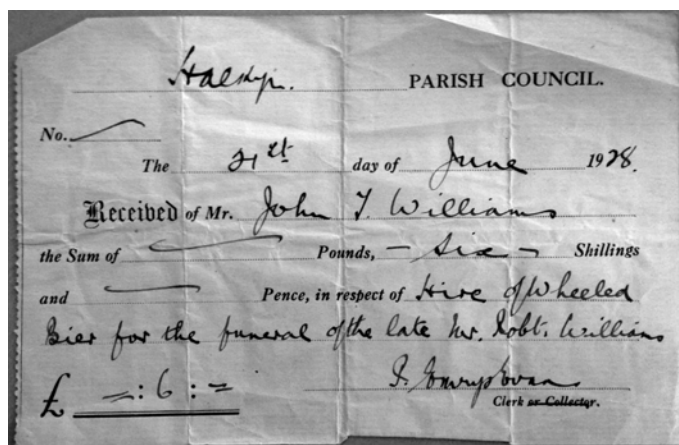 Halkyn. PARISH COUNCIL.
No.
The 21st day of June 1928.
Received of Mr. John T. Williams
the Sum of — Pounds, - Six - Shillings
and — Pence, in respect of Hire of Wheeled
Bier for the funeral of the late Mr. Robt. Williams
£ =: 6 : =
Emrys Evans
Clerk or Collector.